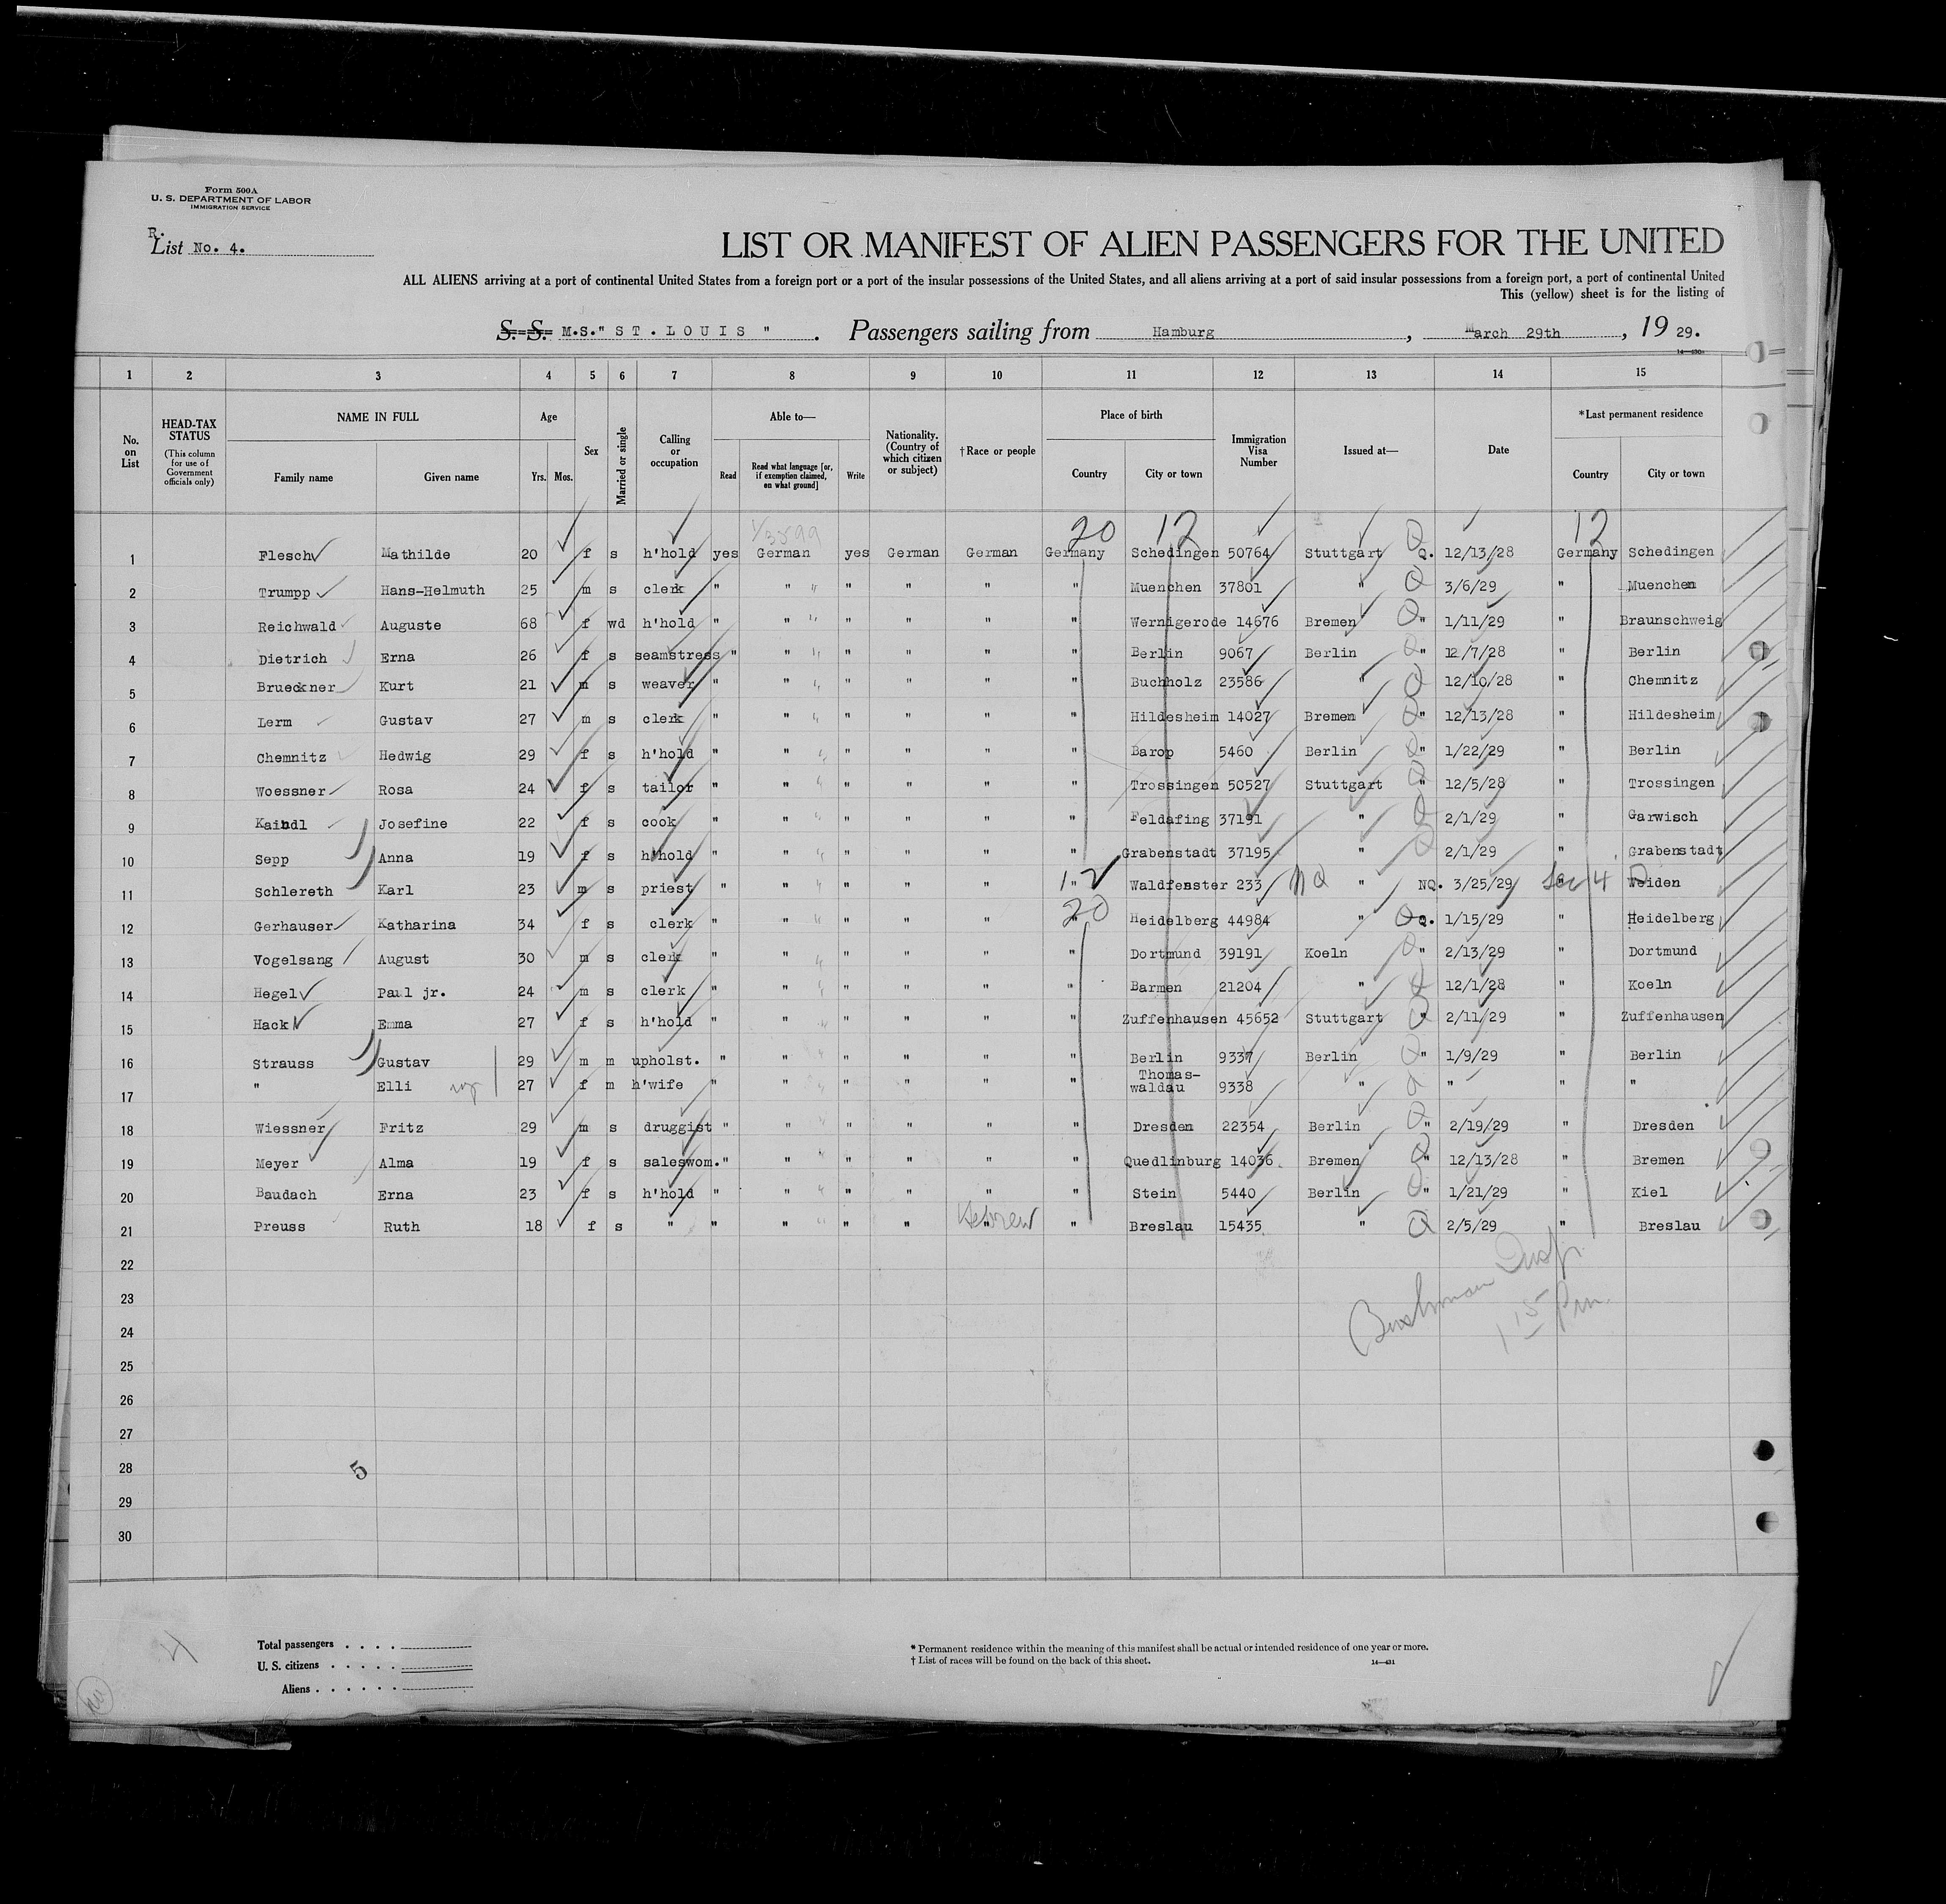 Form 500A
U. S. DEPARTMENT OF LABOR
IMMIGRATION SERVICE
R.
List No. 4.
LIST OR MANIFEST OF ALIEN PASSENGERS FOR THE UNITED
ALL ALIENS arriving at a port of continental United States from a foreign port or a port of the insular possessions of the United States, and all aliens arriving at a port of said insular possessions from a foreign port, a port of continental United
This (yellow) sheet is for the listing of
S. S. M.S." ST. LOUIS ". Passengers sailing from Hamburg, March 29th, 1929.
1 2 3 4 5 6 7 8 9 10 11 12 13 14 15
No. on List
HEAD-TAX STATUS
(This column for use of Government officials only)
NAME IN FULL
Family name Given name
Age
Yrs. Mos.
Sex
Married or single
Calling or occupation
Able to—
Read
Read what language [or, if exemption claimed, on what ground]
Write
Nationality. (Country of which citizen or subject)
†Race or people
Place of birth
Country City or town
Immigration Visa Number
Issued at—
Date
*Last permanent residence
Country City or town
20 12 12
1 Flesch Mathilde 20 f s h'hold yes German yes German German Germany Schedingen 50764 Stuttgart Q. 12/13/28 Germany Schedingen
2 Trumpp Hans-Helmuth 25 m s clerk " " " " " " Muenchen 37801 " Q 3/6/29 " Muenchen
3 Reichwald Auguste 68 f wd h'hold " " " " " " Wernigerode 14676 Bremen Q " 1/11/29 " Braunschweig
4 Dietrich Erna 26 f s seamstress " " " " " " Berlin 9067 Berlin Q " 12/7/28 " Berlin
5 Brueckner Kurt 21 m s weaver " " " " " " Buchholz 23586 " Q 12/10/28 " Chemnitz
6 Lerm Gustav 27 m s clerk " " " " " " Hildesheim 14027 Bremen Q " 12/13/28 " Hildesheim
7 Chemnitz Hedwig 29 f s h'hold " " " " " " Barop 5460 Berlin Q " 1/22/29 " Berlin
8 Woessner Rosa 24 f s tailor " " " " " " Trossingen 50527 Stuttgart Q " 12/5/28 " Trossingen
9 Kaindl Josefine 22 f s cook " " " " " " Feldafing 37191 " Q 2/1/29 " Garwisch
10 Sepp Anna 19 f s h'hold " " " " " " Grabenstadt 37195 " Q 2/1/29 " Grabenstadt
11 Schlereth Karl 23 m s priest " " " " " 12 " Waldfenster 233 NQ " NQ. 3/25/29 Sec 4 D " Weiden
12 Gerhauser Katharina 34 f s clerk " " " " " 20 " Heidelberg 44984 " Q Q. 1/15/29 " Heidelberg
13 Vogelsang August 30 m s clerk " " " " " " Dortmund 39191 Koeln Q " 2/13/29 " Dortmund
14 Hegel Paul jr. 24 m s clerk " " " " " " Barmen 21204 " Q 12/1/28 " Koeln
15 Hack Emma 27 f s h'hold " " " " " " Zuffenhausen 45652 Stuttgart Q " 2/11/29 " Zuffenhausen
16 Strauss Gustav 29 m m upholst. " " " " " " Berlin 9337 Berlin Q " 1/9/29 " Berlin
17 " Elli 27 f m h'wife " " " " " " Thomas-waldau 9338 " Q " " "
18 Wiessner Fritz 29 m s druggist " " " " " " Dresden 22354 Berlin Q " 2/19/29 " Dresden
19 Meyer Alma 19 f s saleswom. " " " " " " Quedlinburg 14036 Bremen Q " 12/13/28 " Bremen
20 Baudach Erna 23 f s h'hold " " " " " " Stein 5440 Berlin Q " 1/21/29 " Kiel
21 Preuss Ruth 18 f s " " " " " Hebrew " " Breslau 15435 " Q 2/5/29 " Breslau
22
23
24
25
26
27
28
29
30
Bushman Insp.
1 15 Pm.
5
4
Total passengers . . . .
U. S. citizens . . . . .
Aliens . . . . . .
* Permanent residence within the meaning of this manifest shall be actual or intended residence of one year or more.
† List of races will be found on the back of this sheet.
14—431